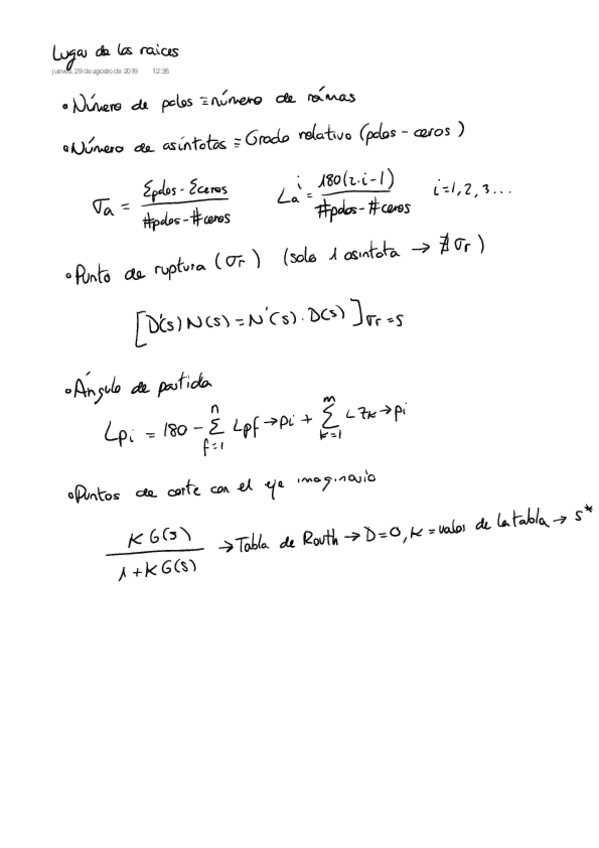 Lugar de las raices
jueves, 29 de agosto de 2019 12:36
• Número de polos = número de rámas
• Número de asíntotas = Grado relativo (polos - ceros)
σa = (Σpolos - Σceros) / (#polos - #ceros) ∠a^i = 180(2·i-1) / (#polos - #ceros) i=1,2,3...
• Punto de ruptura (σr) (solo 1 asintota → ∄ σr)
[D'(s) N(s) = N'(s) · D(s)]σr=s
• Ángulo de partida
∠pi = 180 - Σ_{f=1}^{n} ∠pf→pi + Σ_{k=1}^{m} ∠zk→pi
• Puntos de corte con el eje imaginario
KG(s) / (1+KG(s)) → Tabla de Routh → D=0, K = valor de la tabla → s*